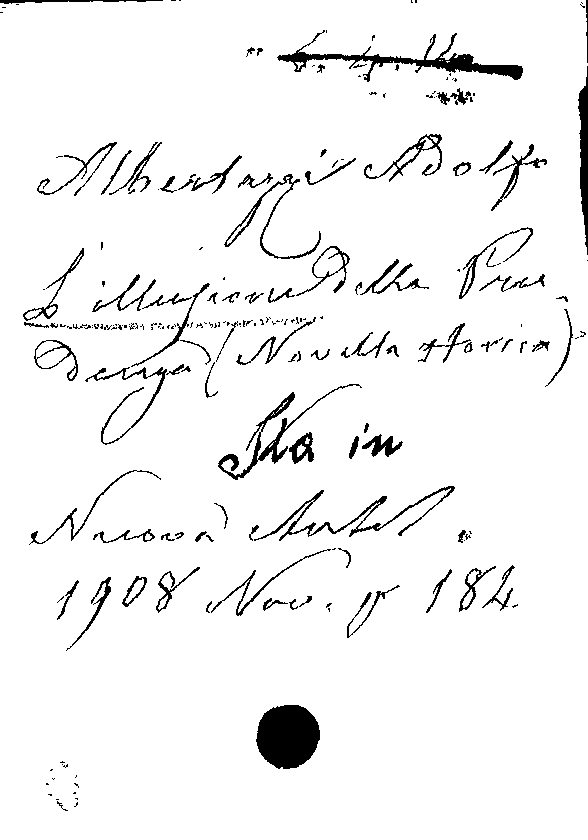 Albertazzi Adolfo
L'illusione della Pru-
denza (Novella storica)
Sta in
Nuova Antol.
1908 Nov. p 184